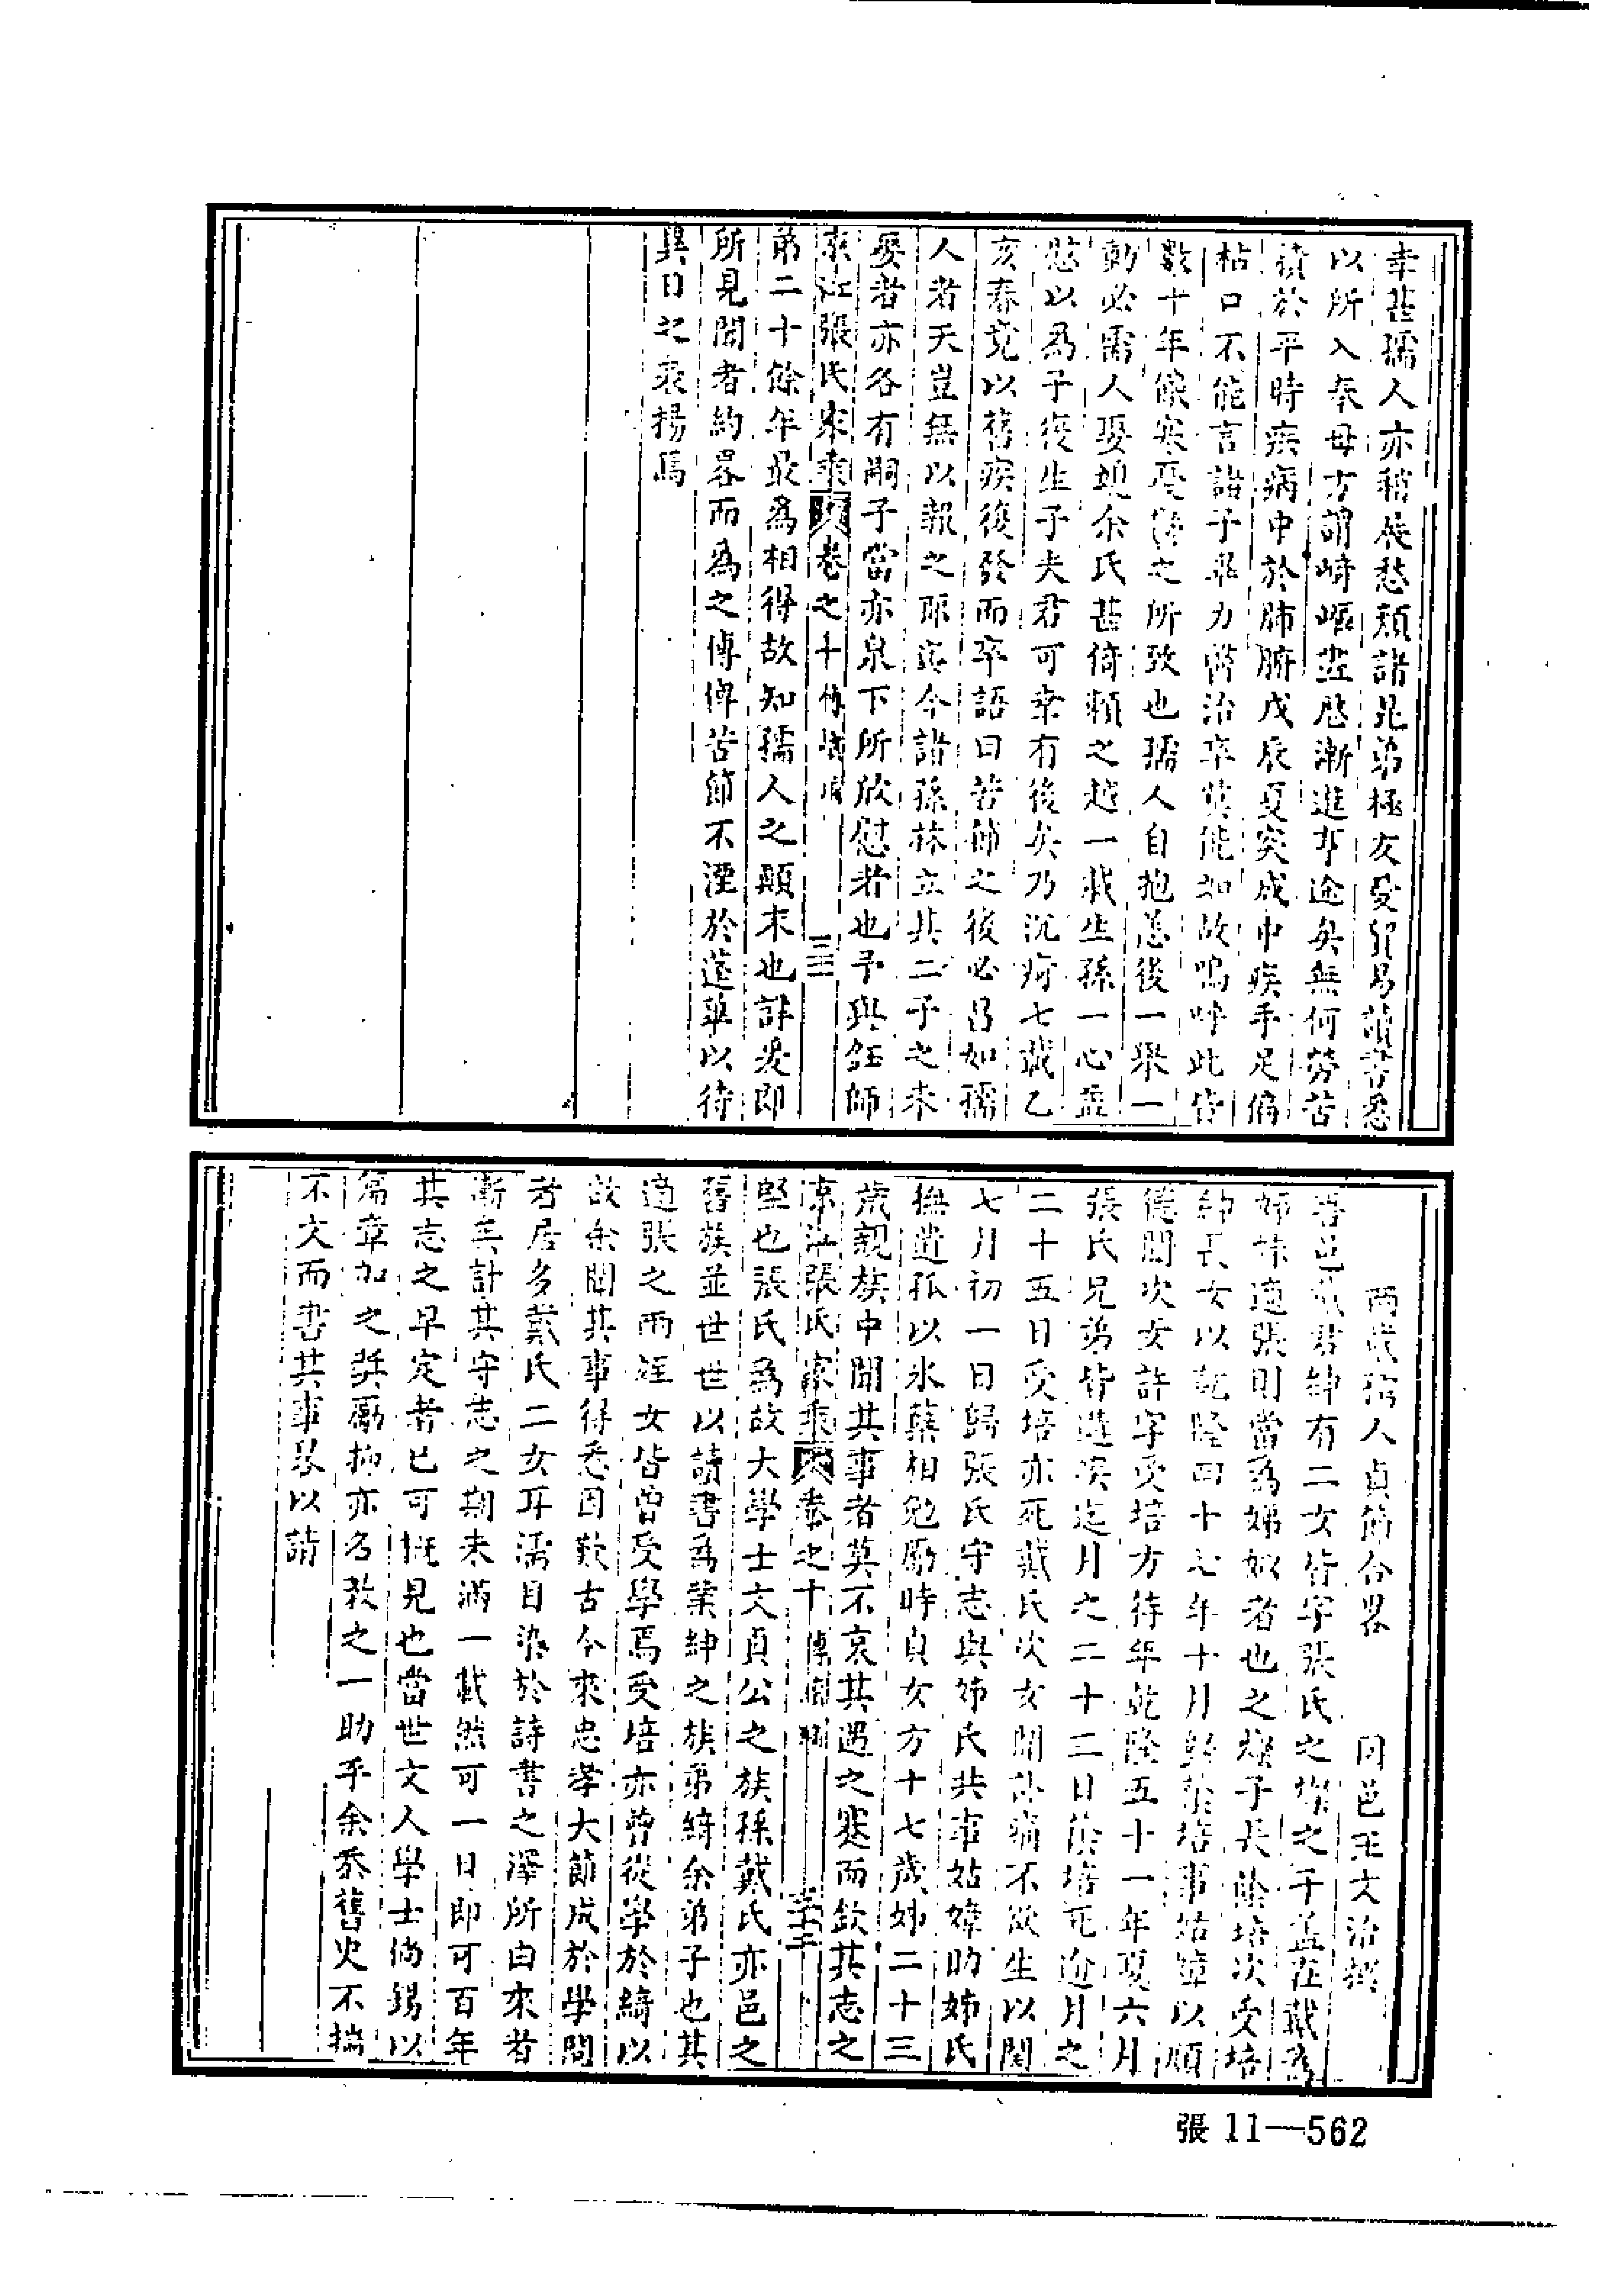 幸甚孺人亦稍展愁顏諸昆弟極友愛貿易讀書悉
以所入奉母方謂崎嶇盡歷漸進亨途矣無何勞苦
積於平時疾病中於肺腑戊辰夏突成中疾手足偏
枯口不能言諸子畢力醫治卒莫能如故嗚呼此皆
數十年飢寒憂之所致也孺人自抱恙後一舉一
動必需人娶媳余氏甚倚賴之越一載生孫一心益
慰以為子復生子夫君可幸有後矣乃沉疴七載乙
亥春竟以舊疾復發而卒語曰苦節之後必昌如孺
人者天豈無以報之耶迄今諸孫林立其二子之未
娶者亦各有嗣子當亦泉下所欣慰者也予與鈺師
京江張氏家乘 卷之十 傳 三二
弟二十餘年最為相得故知孺人之顛末也詳爰即
所見聞者約畧而為之傳俾苦節不湮於蓬蓽以待
異日之表揚焉
兩戴孺人貞節合畧 同邑王文治撰
吾邑戴君紳有二女皆字張氏之之子蓋在戴為
姊妹適張則當為娣姒者也之子長餘培次受培
紳長女以乾隆四十七年十月歸餘培事姑嫜以順
德聞次女許字受培方待年乾隆五十一年夏六月
張氏兄弟皆遘疾迄月之二十二日餘培死逾月之
二十五日受培亦死戴氏次女聞訃痛不欲生以閏
七月初一日歸張氏守志與姊氏共事姑嫜助姊氏
撫遺孤以冰蘗相勉勵時貞女方十七歲姊二十三
歲親族中聞其事者莫不哀其遇之蹇而欽其志之
京江張氏家乘 卷之十 傳 三十三
堅也張氏為故大學士文貞公之族孫戴氏亦邑之
舊族並世世以讀書為業紳之族弟綺余弟子也其
適張之兩姪女皆曾受學焉受培亦曾從學於綺以
故余聞其事得悉因歎古今來忠孝大節成於學問
者居多戴氏二女耳濡目染於詩書之澤所由來者
漸矣計其守志之期未滿一載然可一日即可百年
其志之早定者已可概見也當世文人學士倘錫以
篇章加之獎勵抑亦名教之一助乎余忝舊史不揣
不文而書其事畧以請
張 11—562